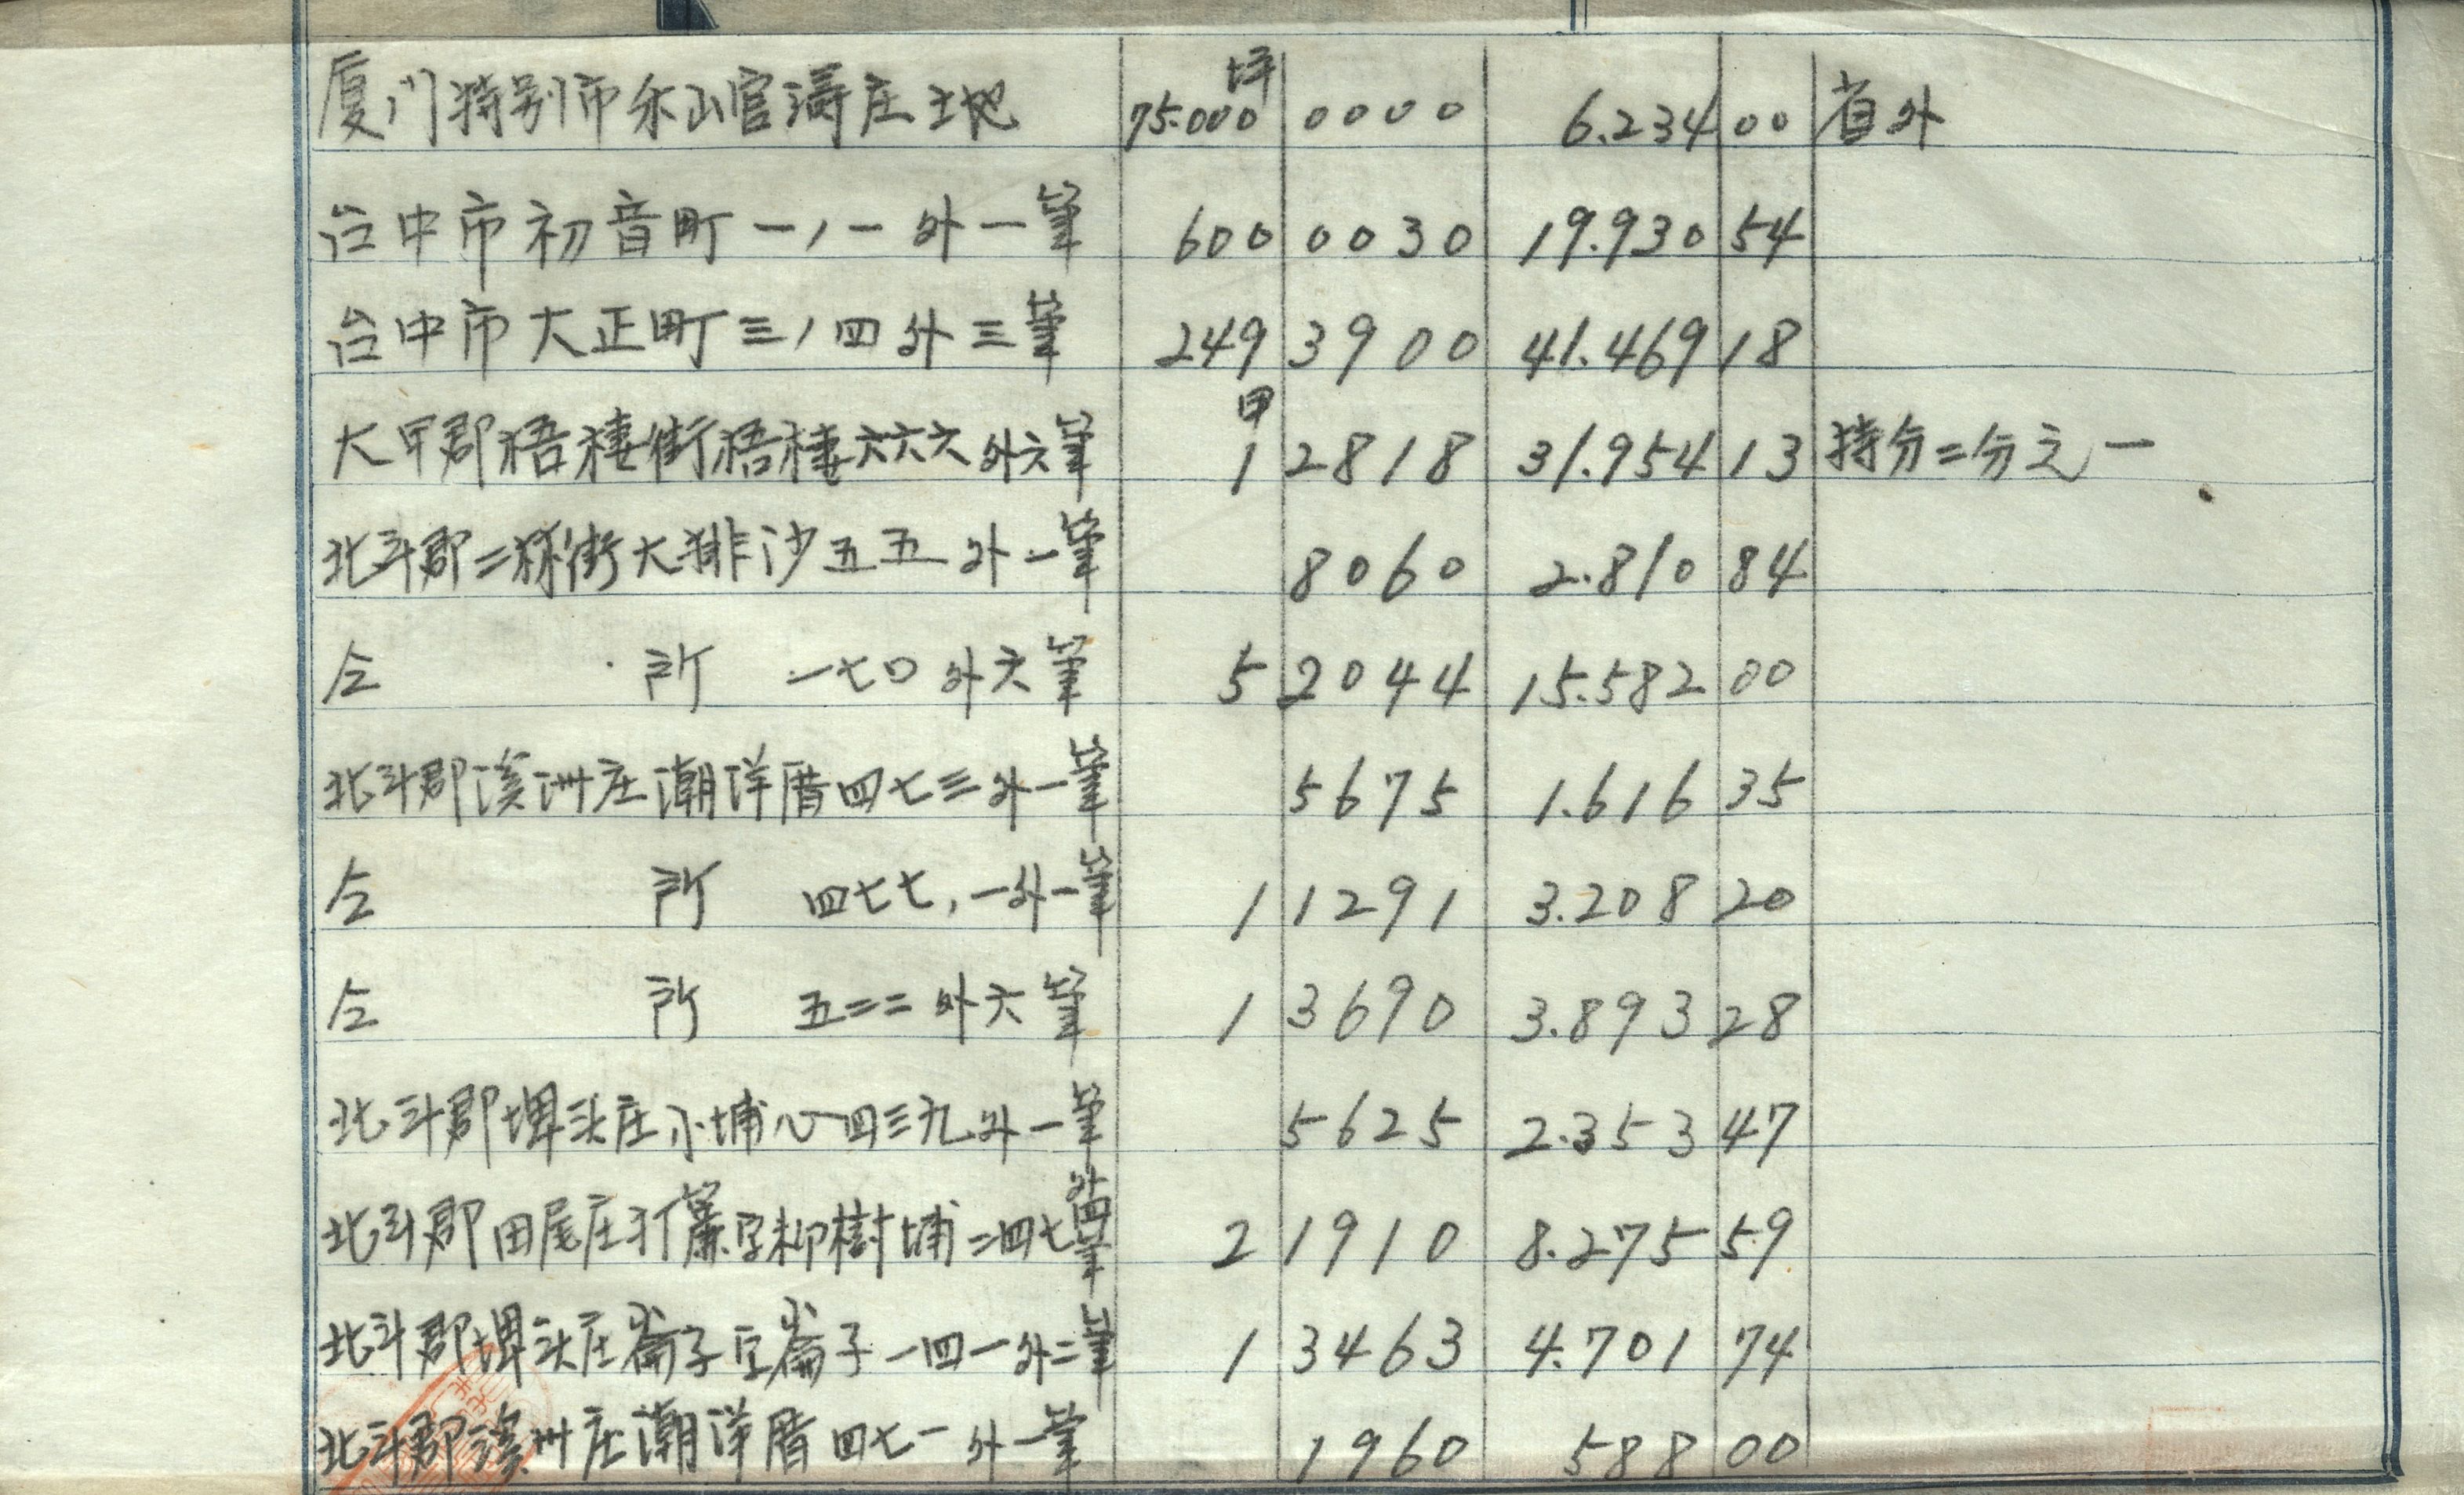 厦门特别市禾山官潯庄土地 75.000坪 0000 6.234 00 省外
台中市初音町一ノ一外一筆 600 0030 19.930 54
台中市大正町三ノ四外三筆 249 3900 41.469 18
大甲郡梧棲街梧棲六六六外六筆 1甲 2818 31.954 13 持分二分之一
北斗郡二林街大排沙五五外一筆 8060 2.810 84
仝 所 一七〇外六筆 5 2044 15.582 00
北斗郡溪洲庄潮洋厝四七三外一筆 5675 1.616 35
仝 所 四七七ノ一外一筆 1 1291 3.208 20
仝 所 五二二外六筆 1 3690 3.893 28
北斗郡埤头庄小埔心四三九外一筆 5625 2.353 47
北斗郡田尾庄打簾字柳樹埔二四七外四筆 2 1910 8.275 59
北斗郡埤头庄崙子字崙子一四一外二筆 1 3463 4.701 74
北斗郡溪州庄潮洋厝四七一外一筆 1960 588 00